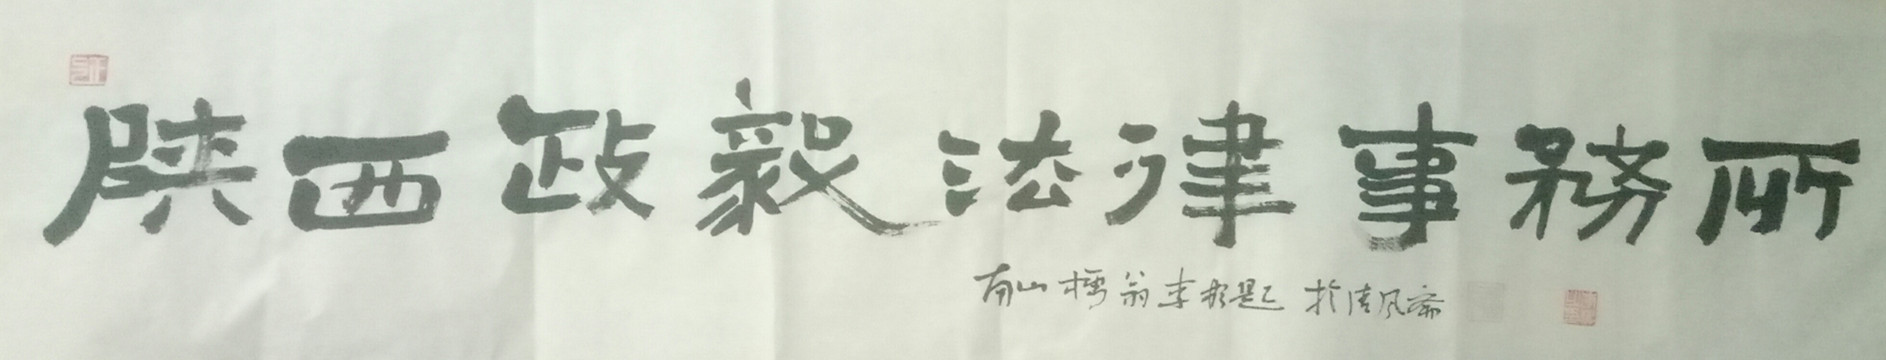 陕西政毅法律事務所
南山樗翁李彬題於清风斋